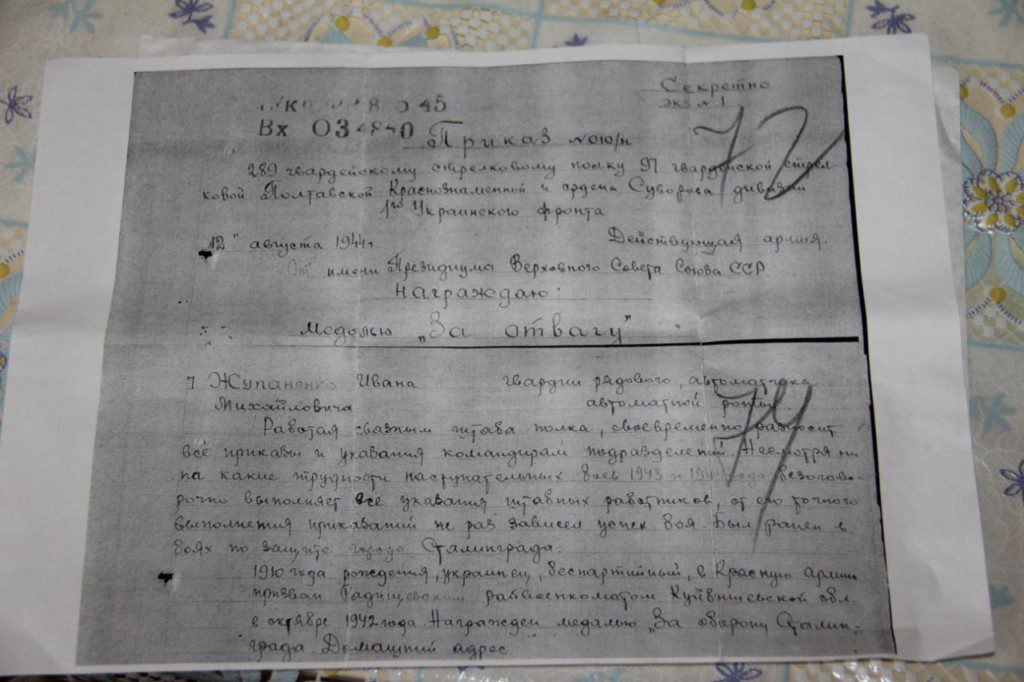 Секретно
экз №1
45
Вх
72
Приказ №010/н
289 гвардейскому стрелковому полку 97 гвардейской стрел-
ковой Полтавской Краснознаменной и ордена Суворова дивизии
1го Украинского фронта
"12" августа 1944г. Действующая армия.
От имени Президиума Верховного Совета Союза ССР.
Награждаю:
Медалью „За отвагу"
7 Жупаненко Ивана гвардии рядового, автоматчика
Михайловича автоматной роты.
74
Работая связным штаба полка, своевременно разносит
все приказы и указания командирам подразделений. Несмотря ни
на какие трудности наступательных боев 1943 и 1944 года безогово-
рочно выполняет все указания штабных работников, от его точного
выполнения приказаний не раз зависел успех боя. Был ранен в
боях по защите города Сталинграда.
1910 года рождения, украинец, беспартийный, в Красную армию
призван Радищевским райвоенкоматом Куйбышевской обл.
с октября 1942 года. Награжден медалью „За оборону Сталин-
града. Домашний адрес